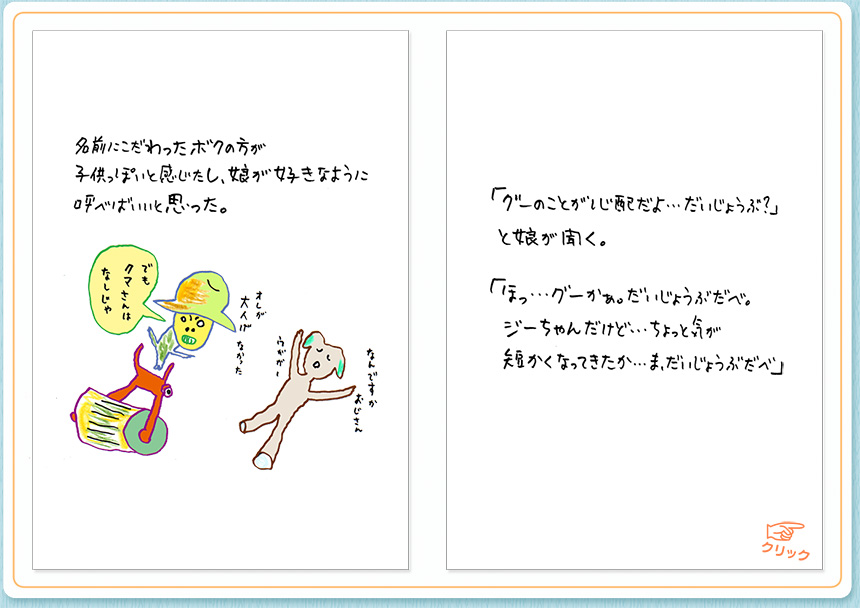 名前にこだわったボクの方が
子供っぽいと感じたし、娘が好きなように
呼べばいいと思った。
でも
クマさんは
なしじゃ
オレが
大人げ
なかった
うががー
なんですか
おじさん
「グーのことが心配だよ…だいじょうぶ?」
と娘が聞く。
「ほっ…グーかぁ。だいじょうぶだべ。
ジーちゃんだけど…ちょっと気が
短かくなってきたか…ま、だいじょうぶだべ」
クリック